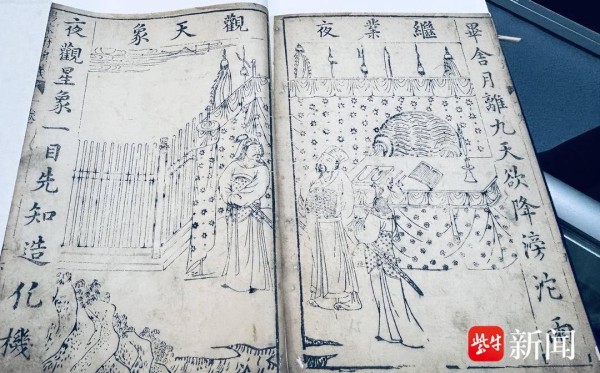 繼業夜觀天象
畢舍月離九天欲降滂沱雨
夜觀星象一目先知造化機
紫牛新闻